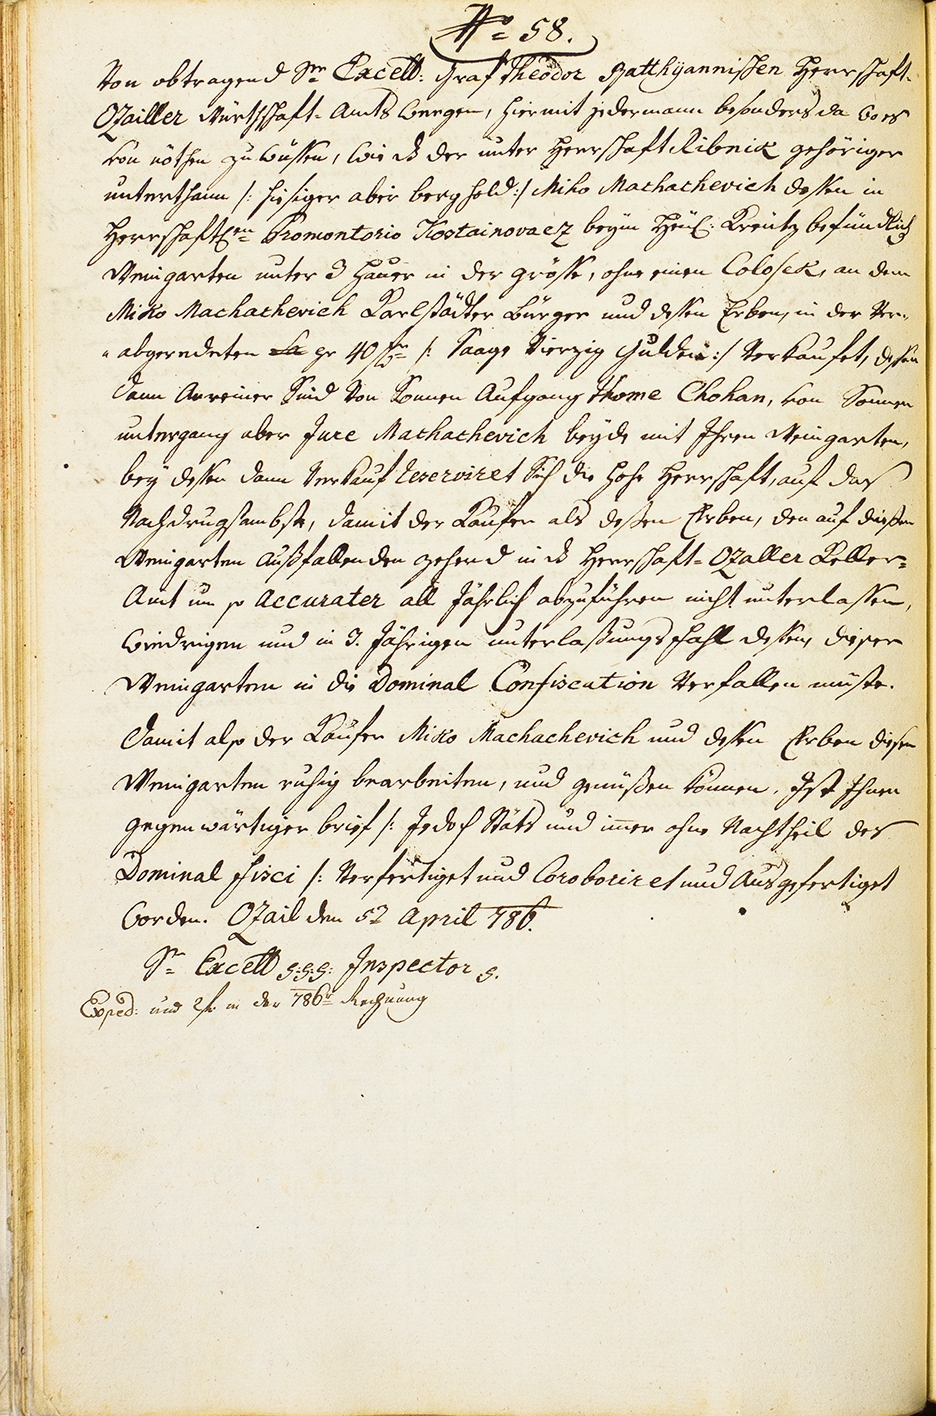 No 58.
Von obtragend Sr Excell: Graf Theodor Batthyannischen Herrschaft-
Ozailler Würthschaft-Amts wegen, hiermit jedermann besonders da wo es
von nöthen zu wüssen, wie der unter Herrschaft Ribnik gehöriger
unterthann /: hiesiger aber berghold :/ Miko Machachevich dessen in
Herrschaftlen Promontorio Kostainovacz beym Heil: Kreütz befündlich
Weingarten unter 3 Hauer in der grösse, ohne einen Colosek, an dem
Miko Machachevich Karlstädter Bürger und dessen Erben, in der Ver-
abgeredeten pr 40 fr /: Saage Vierzig Gulden :/ Verkaufet, dessen
dann Anreiner Sind Von Sonnen Aufgang Thome Chohan, von Sonnen
untergang aber Jure Machachevich beyde mit Ihren Weingarten,
bey dessen dann Verkauf reserviret Sich die hohe Herrschaft, auf das
Nachdrugsambste, damit der Käufer als dessen Erben, den auf diessen
Weingarten Außfallenden zehend in Herrschaft-Ozaller Keller-
Amt um so Accurater all Jährlich abzuführen nicht unterlassen,
wiedrigen und in 3. Jährigen unterlassungs fahl dessen, dieser
Weingarten in die Dominal Confiscation Verfallen müste.
Damit also der Käufer Miko Machachevich und dessen Erben diesen
Weingarten ruhig bearbeiten, und genüßen können. Ist Ihnen
gegenwärtiger brief /: Jedoch Stäts und immer ohne Nachtheil des
Dominal Fisci /: Verfertiget und Coroboriret und Ausgefertiget
worden. Ozail den April 786.
Sr Excell S:S:S: Inspector S.
Exped: und in der 786r Rechnung